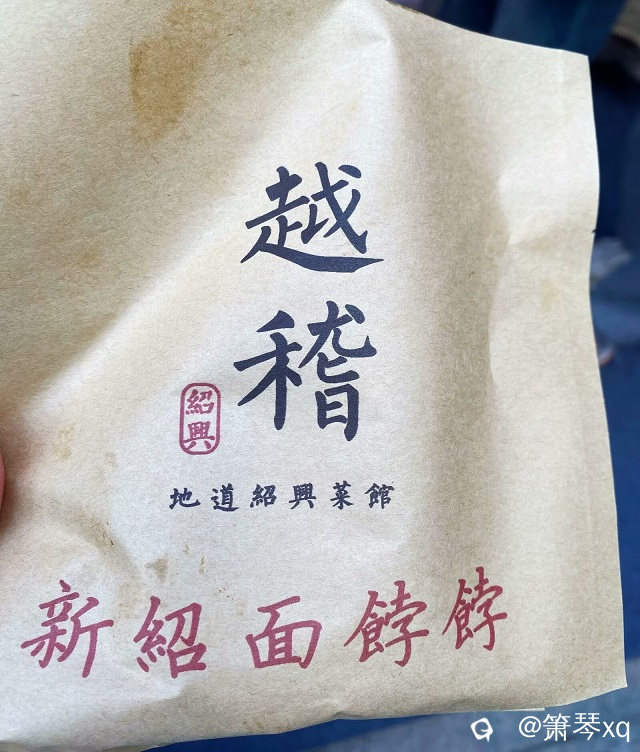 越稽
紹興
地道紹興菜館
新紹面餑餑
@箫琴xq